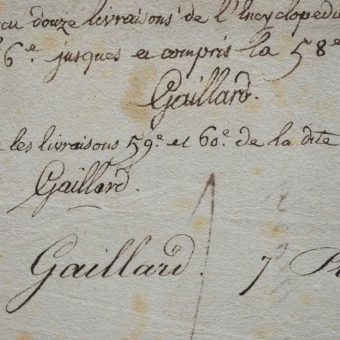 çu douze livraisons de l'Encyclopedi
6e. jusques et compris la 58e
Gaillard.
les livraisons 59e. et 60e. de la dite
Gaillard.
Gaillard. 7